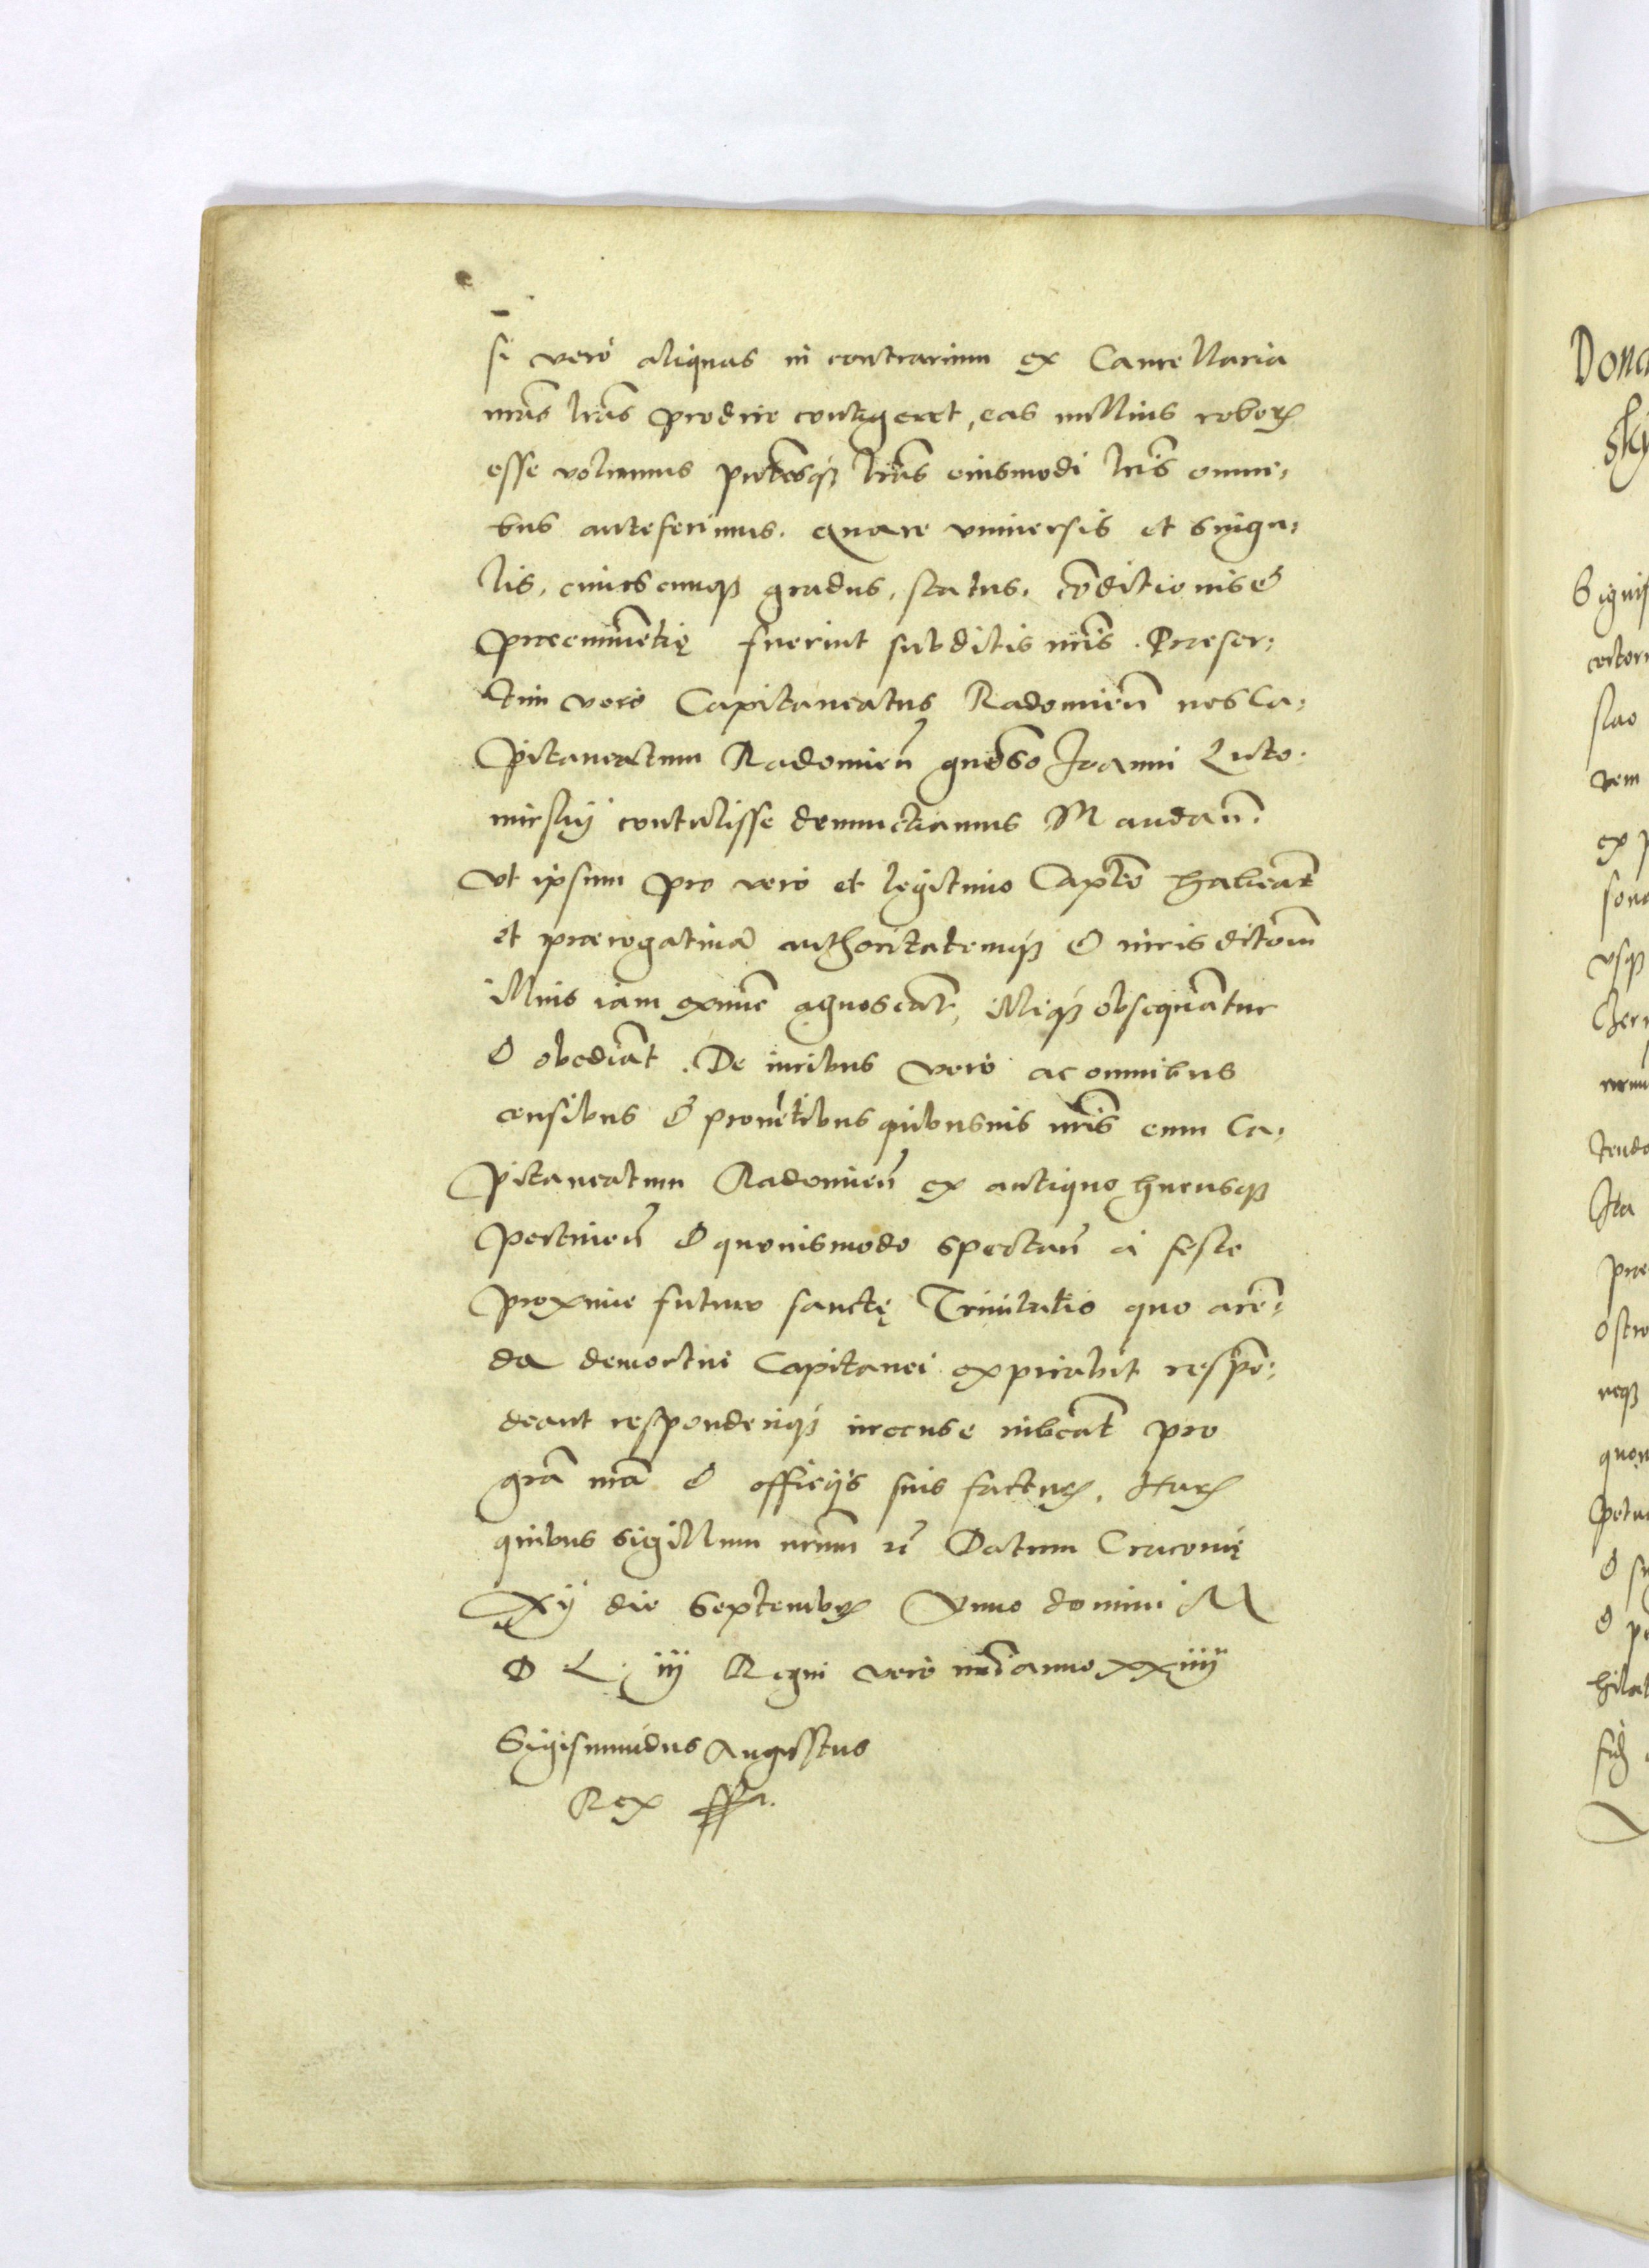 si vero aliquas in contrarium ex Cancellaria
nrãs lrãs prodire contigeret, eas nullius roboris
esse volumus pntesq lrãs eiusmodi lris omni⸗
bus anteferimus. Quare universis et singu⸗
lis, cuiuscunq gradus, status, cõditionis &
præeminẽtię fuerint subditis nris. Præser⸗
tim vero Capitaneatus Radomień nos Ca⸗
pitaneatum Radomień gnoso Joanni Luto⸗
mirsky contulisse denunctiamus Mandań.
Vt ipsum pro vero et legitimo Capteo habeãt
et prærogatiuã authoritatemq & iurisditoem
illius iam exnunc agnoscãt, illiq obsequãtur
& obediãt. De iuribus vero ac omnibus
censibus & prouẽtibus quibusuis nris cum Ca⸗
pitaneatum Radomień ex antiquo hucusq
pertineń & quouismodo spectań à festo
proxime futuro sanctę Trinitatis quo arẽ⸗
da demortui Capitanei expirabit respõ⸗
deant responderiq irecuse iubeãt pro
grã nrã & officijs suis factur. Harum
quibus sigillum nrum &c Datum Cracouię
Xij die Septembris Anno domini M
D L iij Regni vero nri anno xxiiij
Sigismũdus Augustus
Rex ssa.
Dona
sky
Signif
stao
rem
ex p
sona
vsq
Cher
tendo
Ita
præ
ostro
neq
quon
petu
& su
& pe
hilat